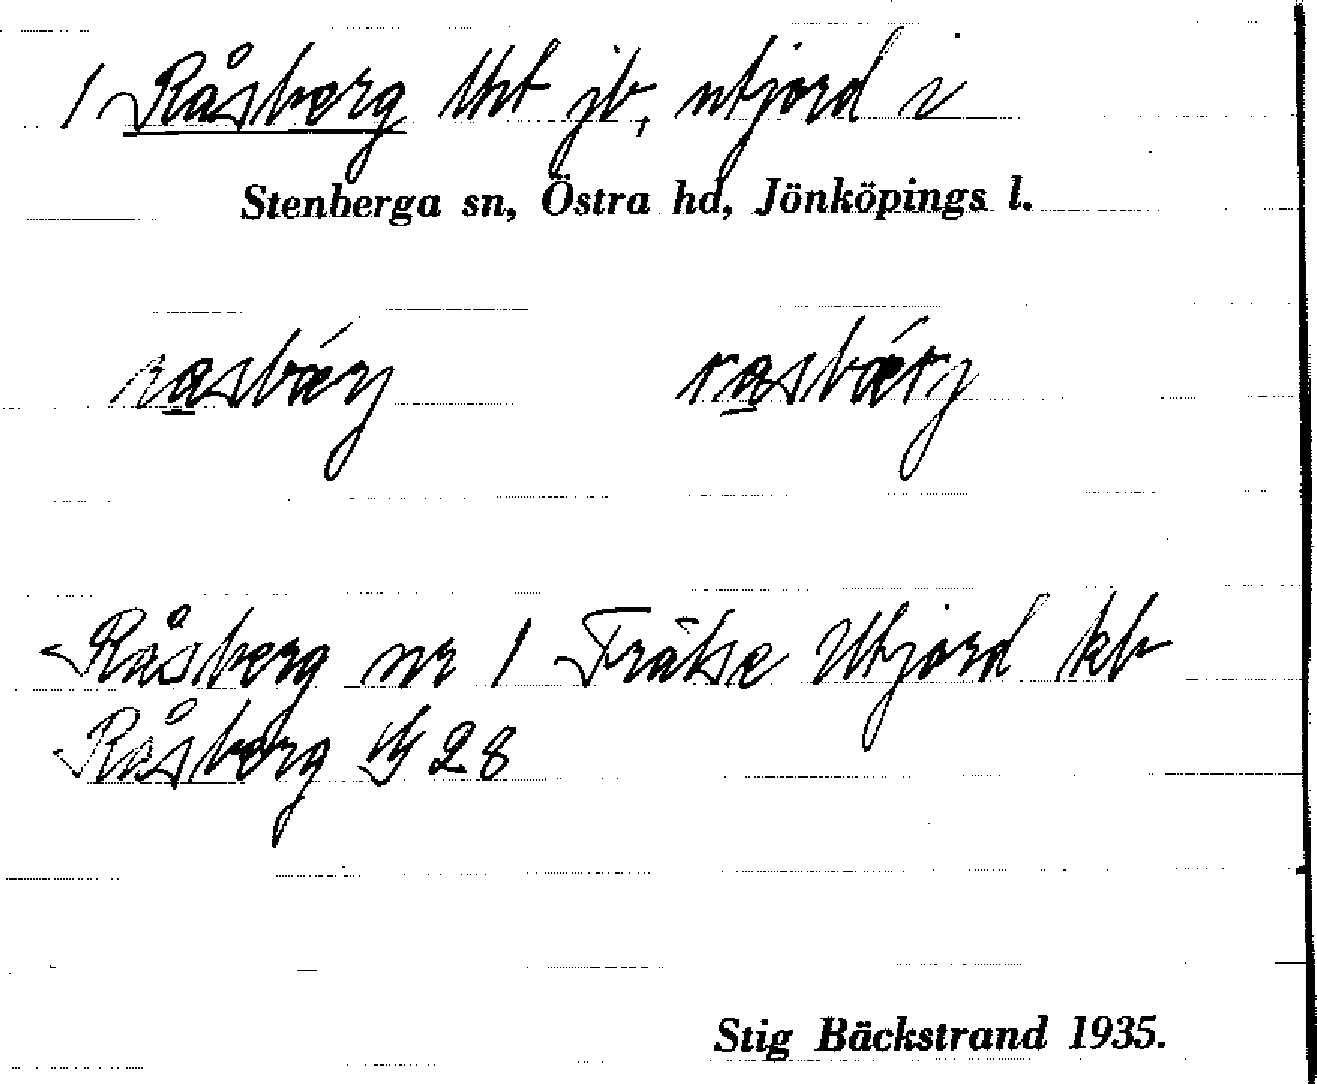 1 Råsberg Utt jb, utjord i
Stenberga sn, Östra hd, Jönköpings l.
rasbárj rasbǽrj
Råsberg nr 1 Frälse Utjord kb
Råsberg 28
Stig Bäckstrand 1935.